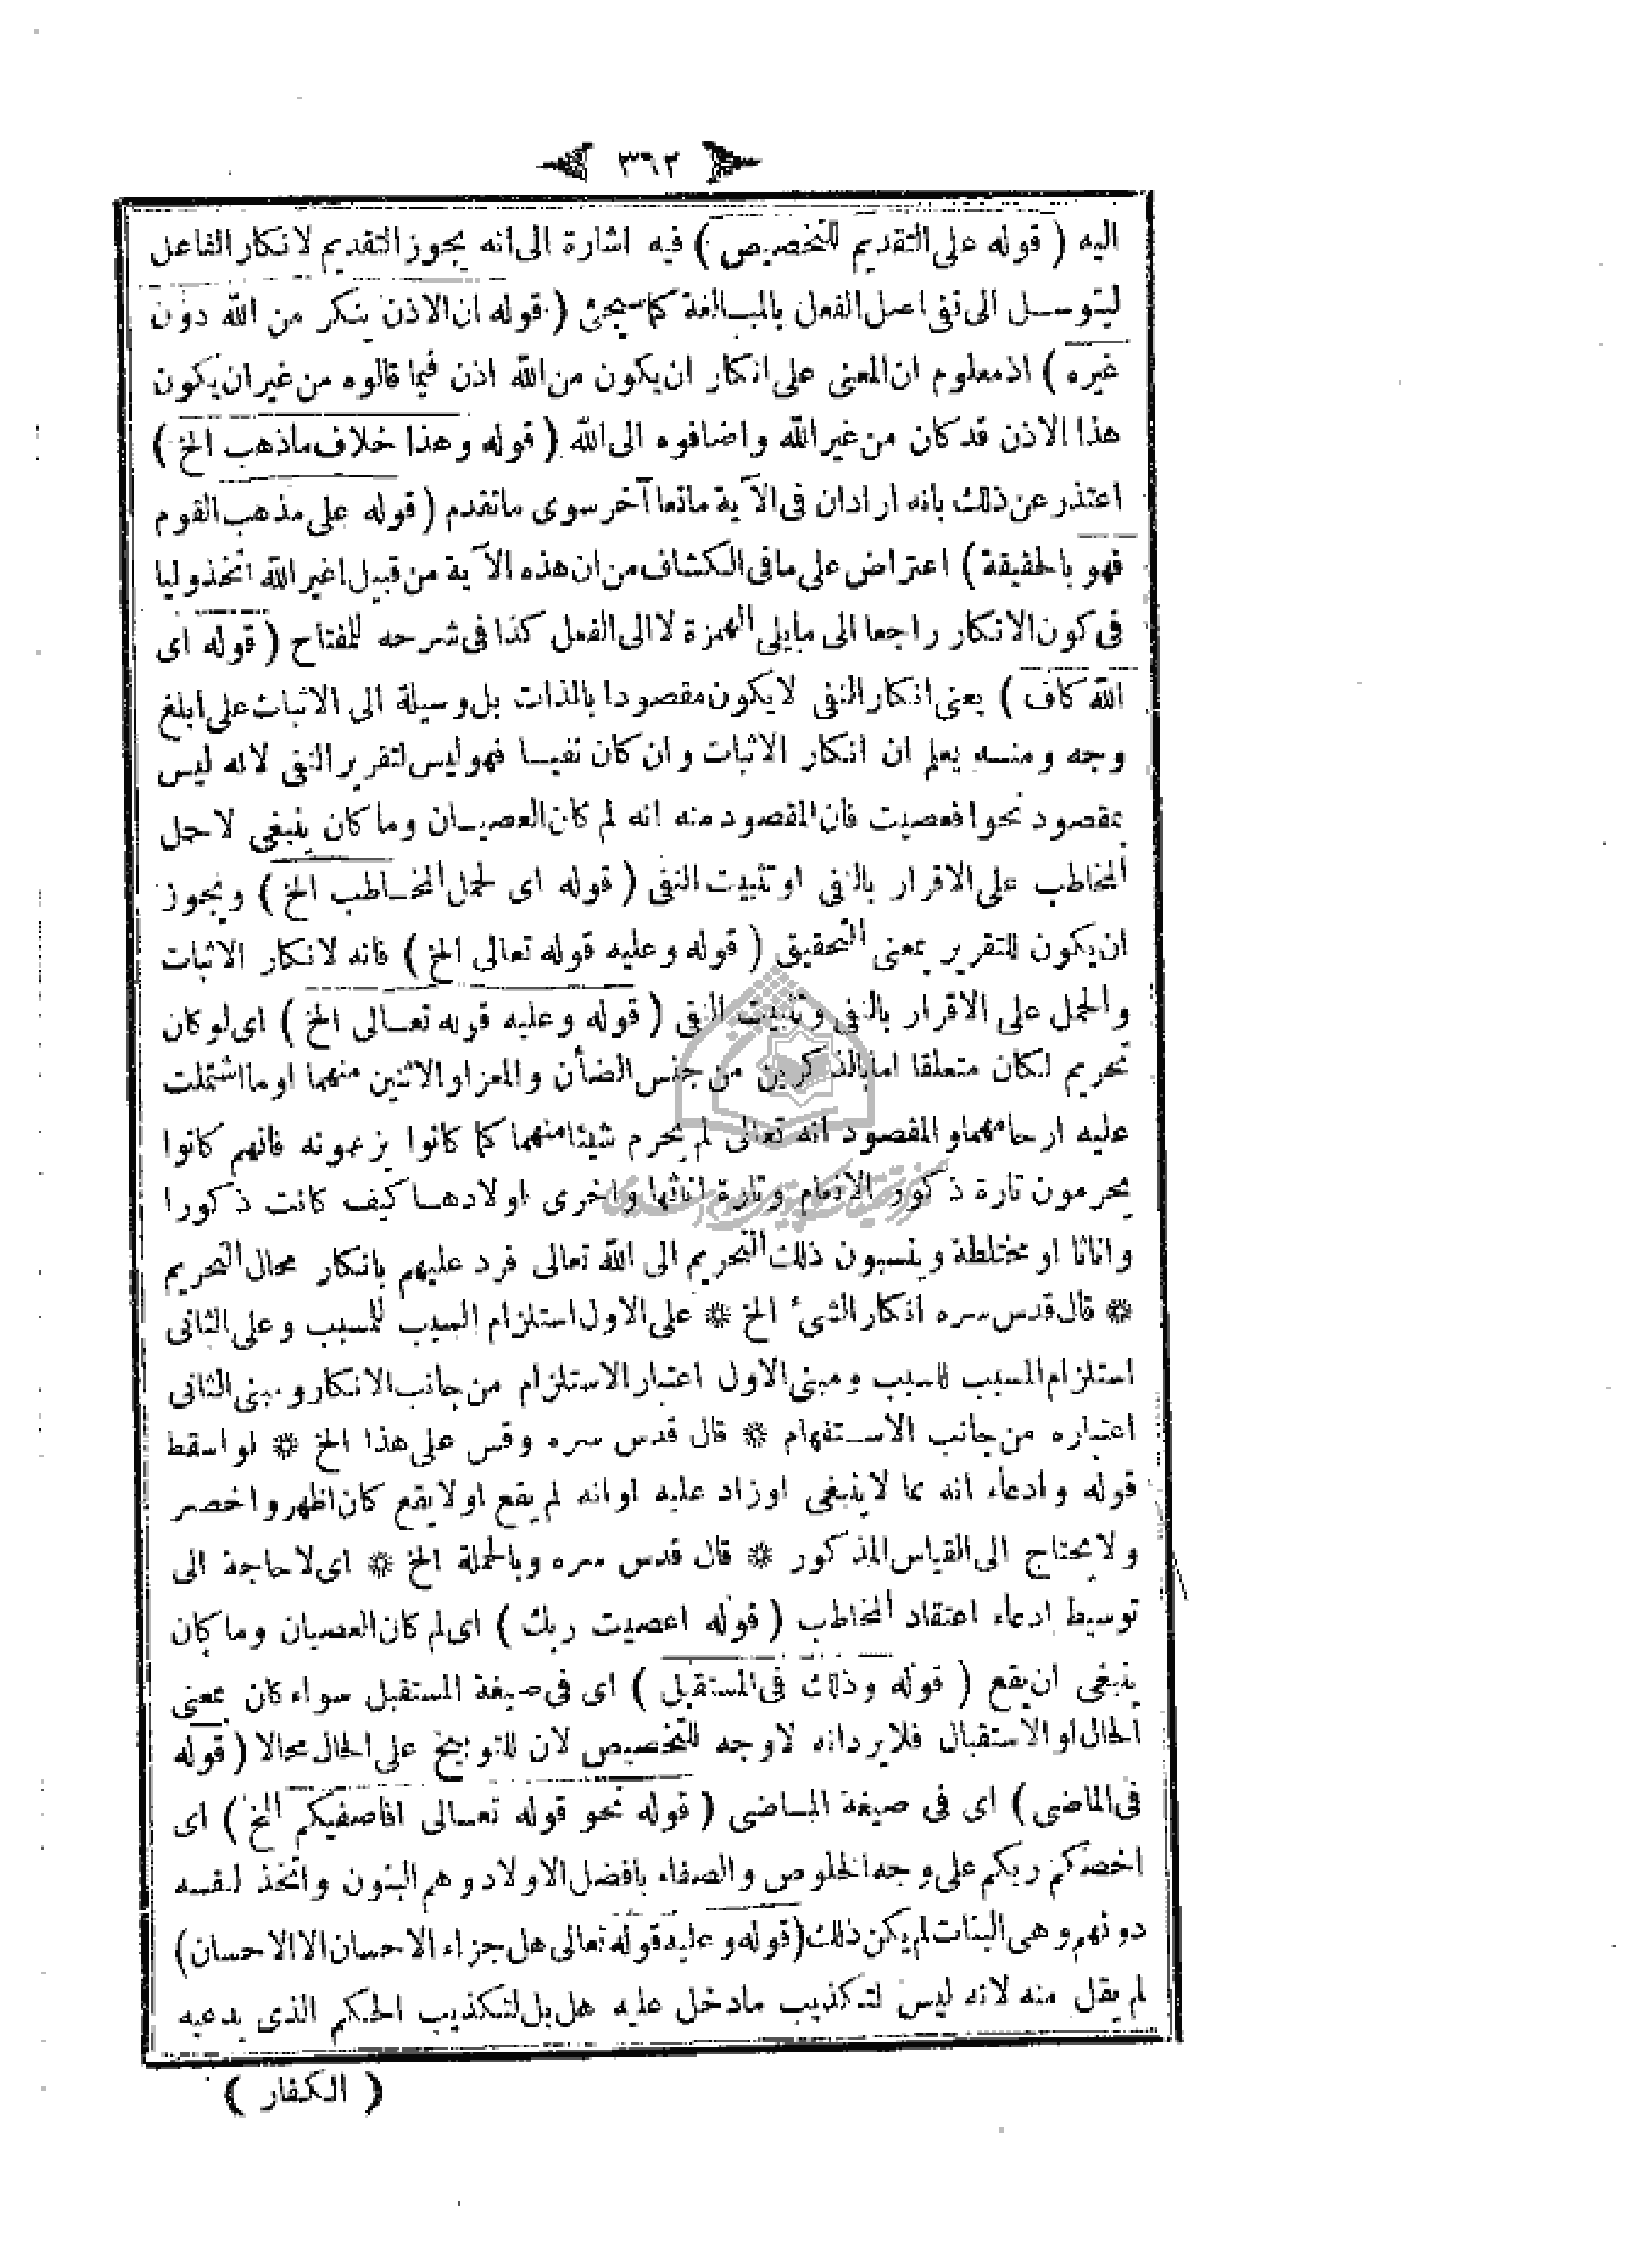 ٣٦٢
اليه ( قوله على التقديم للتخصيص ) فيه اشارة الى انه يجوز التقديم لانكار الفاعل
ليتوسل الى نفى اصل الفعل بالمبالغة كما سيجئ ( قوله ان الاذن ينكر من الله دون
غيره ) اذ معلوم ان المعنى على انكار ان يكون من الله اذن فيما قالوه من غير ان يكون
هذا الاذن قد كان من غير الله واضافوه الى الله ( قوله وهذا خلاف ماذهب الخ )
اعتذر عن ذلك بانه اراد ان فى الآية مانعا آخر سوى ماتقدم ( قوله على مذهب القوم
فهو بالحقيقة ) اعتراض على مافى الكشاف من ان هذه الآية من قبيل اغير الله اتخذ وليا
فى كون الانكار راجعا الى مايلى الهمزة لا الى الفعل كذا فى شرحه للمفتاح ( قوله اى
الله كاف ) يعنى انكار النفى لايكون مقصودا بالذات بل وسيلة الى الاثبات على ابلغ
وجه ومنه يعلم ان انكار الاثبات وان كان نفيا فهو ليس لتقرير النفى لانه ليس
بمقصود نحو افعصيت فان المقصود منه انه لم كان العصيان وما كان ينبغى لا حمل
المخاطب على الاقرار بالنفى او تثبيت النفى ( قوله اى لحمل المخاطب الخ ) ويجوز
ان يكون للتقرير بمعنى التحقيق ( قوله وعليه قوله تعالى الخ ) فانه لانكار الاثبات
والحمل على الاقرار بالنفى وتثبيت النفى ( قوله وعليه قوله تعالى الخ ) اى لو كان
تحريم لكان متعلقا اما بالذكرين من جنس الضأن والمعز او الانثيين منهما او ما اشتملت
عليه ارحامهما والمقصود انه تعالى لم يحرم شيئا منهما كما كانوا يزعمونه فانهم كانوا
يحرمون تارة ذكور الانعام وتارة اناثها واخرى اولادها كيف كانت ذكورا
واناثا او مختلطة وينسبون ذلك التحريم الى الله تعالى فرد عليهم بانكار محال التحريم
* قال قدس سره انكار الشئ الخ * على الاول استلزام السبب للمسبب وعلى الثانى
استلزام المسبب للسبب ومبنى الاول اعتبار الاستلزام من جانب الانكار ومبنى الثانى
اعتباره من جانب الاستفهام * قال قدس سره وقس على هذا الخ * لو اسقط
قوله وادعاء انه مما لاينبغى او زاد عليه او انه لم يقع او لا يقع كان اظهر واخصر
ولا يحتاج الى القياس المذكور * قال قدس سره وبالجملة الخ * اى لا حاجة الى
توسيط ادعاء اعتقاد المخاطب ( قوله اعصيت ربك ) اى لم كان العصيان وما كان
ينبغى ان يقع ( قوله وذلك فى المستقبل ) اى فى صيغة المستقبل سواء كان بمعنى
الحال او الاستقبال فلا يرد انه لاوجه للتخصيص لان للتوبيخ على الحال مجالا ( قوله
فى الماضى ) اى فى صيغة الماضى ( قوله نحو قوله تعالى افاصفيكم الخ ) اى
اخصكم ربكم على وجه الخلوص والصفاء بافضل الاولاد وهم البنون واتخذ لنفسه
دونهم وهى البنات لم يكن ذلك ( قوله وعليه قوله تعالى هل جزاء الاحسان الا الاحسان )
لم يقل منه لانه ليس لتكذيب مادخل عليه هل بل لتكذيب الحكم الذى يدعيه
( الكفار )